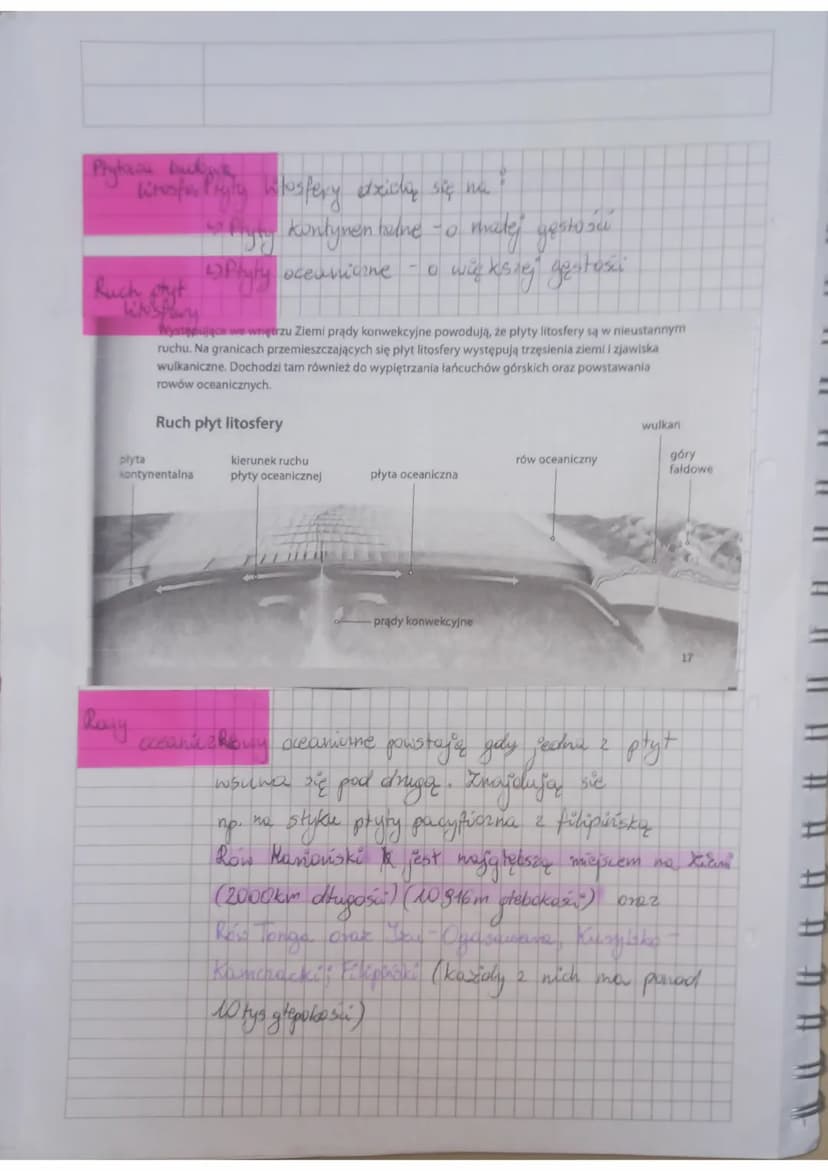 Płytowa budowa
litosfery
Płyty litosfery dzielą się na:
↳ Płyty kontynentalne - o małej gęstości
↳ Płyty oceaniczne - o większej gęstości
Ruch płyt
litosfery
Występujące we wnętrzu Ziemi prądy konwekcyjne powodują, że płyty litosfery są w nieustannym
ruchu. Na granicach przemieszczających się płyt litosfery występują trzęsienia ziemi i zjawiska
wulkaniczne. Dochodzi tam również do wypiętrzania łańcuchów górskich oraz powstawania
rowów oceanicznych.
Ruch płyt litosfery
wulkan
płyta
kontynentalna
kierunek ruchu
płyty oceanicznej
płyta oceaniczna
rów oceaniczny
góry
fałdowe
prądy konwekcyjne
17
Rowy
oceaniczne
Rowy oceaniczne powstają gdy jedna z płyt
wsuwa się pod drugą. Znajdują się
np. na styku płyty pacyficzna z filipińską
Rów Mariański jest najgłębszą miejscem na Ziemi
(2000km długości) (10 916m głębokości) oraz
Rów Tonga oraz Izu-Ogasawara, Kurylsko-
Kamchacki; Filipiński (każdy z nich ma ponad
10 tyś głębokości)